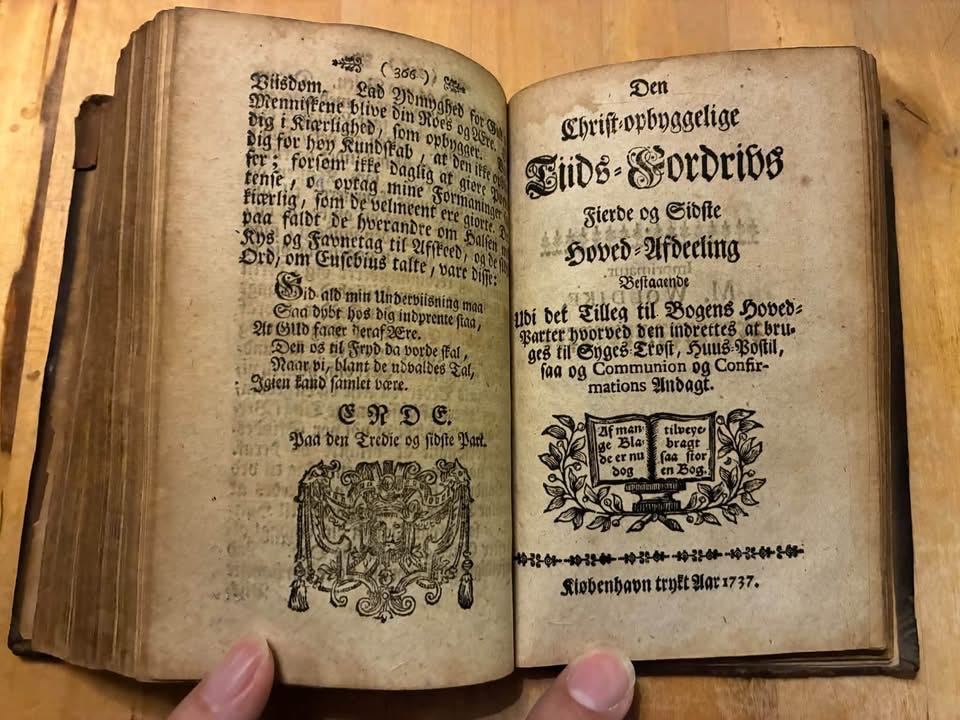 ( 366 )
Viisdom. Lad Ydmyghed for Gud
Menniskene blive din Roes og Ære.
dig i Kiærlighed, som opbygger.
dig for høy Kundskab, at den ikke
fer; forsom ikke daglig at giøre
tense, og optag mine Formaninger
kiærlig, som de velmeent ere giorte.
paa faldt de hverandre om Halsen
Kys og Favnetag til Afskeed, og de
Ord, om Eusebius talte, vare disse:
Gid ald min Underviisning maa
Saa dybt hos dig indprente staa,
At GUd faaer deraf Ære.
Den os til Fryd da vorde skal,
Naar vi, blant de udvaldes Tal,
Igien kand samlet være.
ENDE.
Paa den Tredie og sidste Part.
Den
Christ-opbyggelige
Tiids-Fordrivs
Fierde og Sidste
Hoved-Afdeeling
Bestaaende
Udi det Tilleg til Bogens Hoved-
Parter hvorved den indrettes at bru-
ges til Syges Trøst, Huus-Postil,
saa og Communion og Confir-
mations Andagt.
Af man-
ge Bla-
de er nu
dog
tilveye-
bragt
saa stor
en Bog.
Kiøbenhavn trykt Aar 1737.